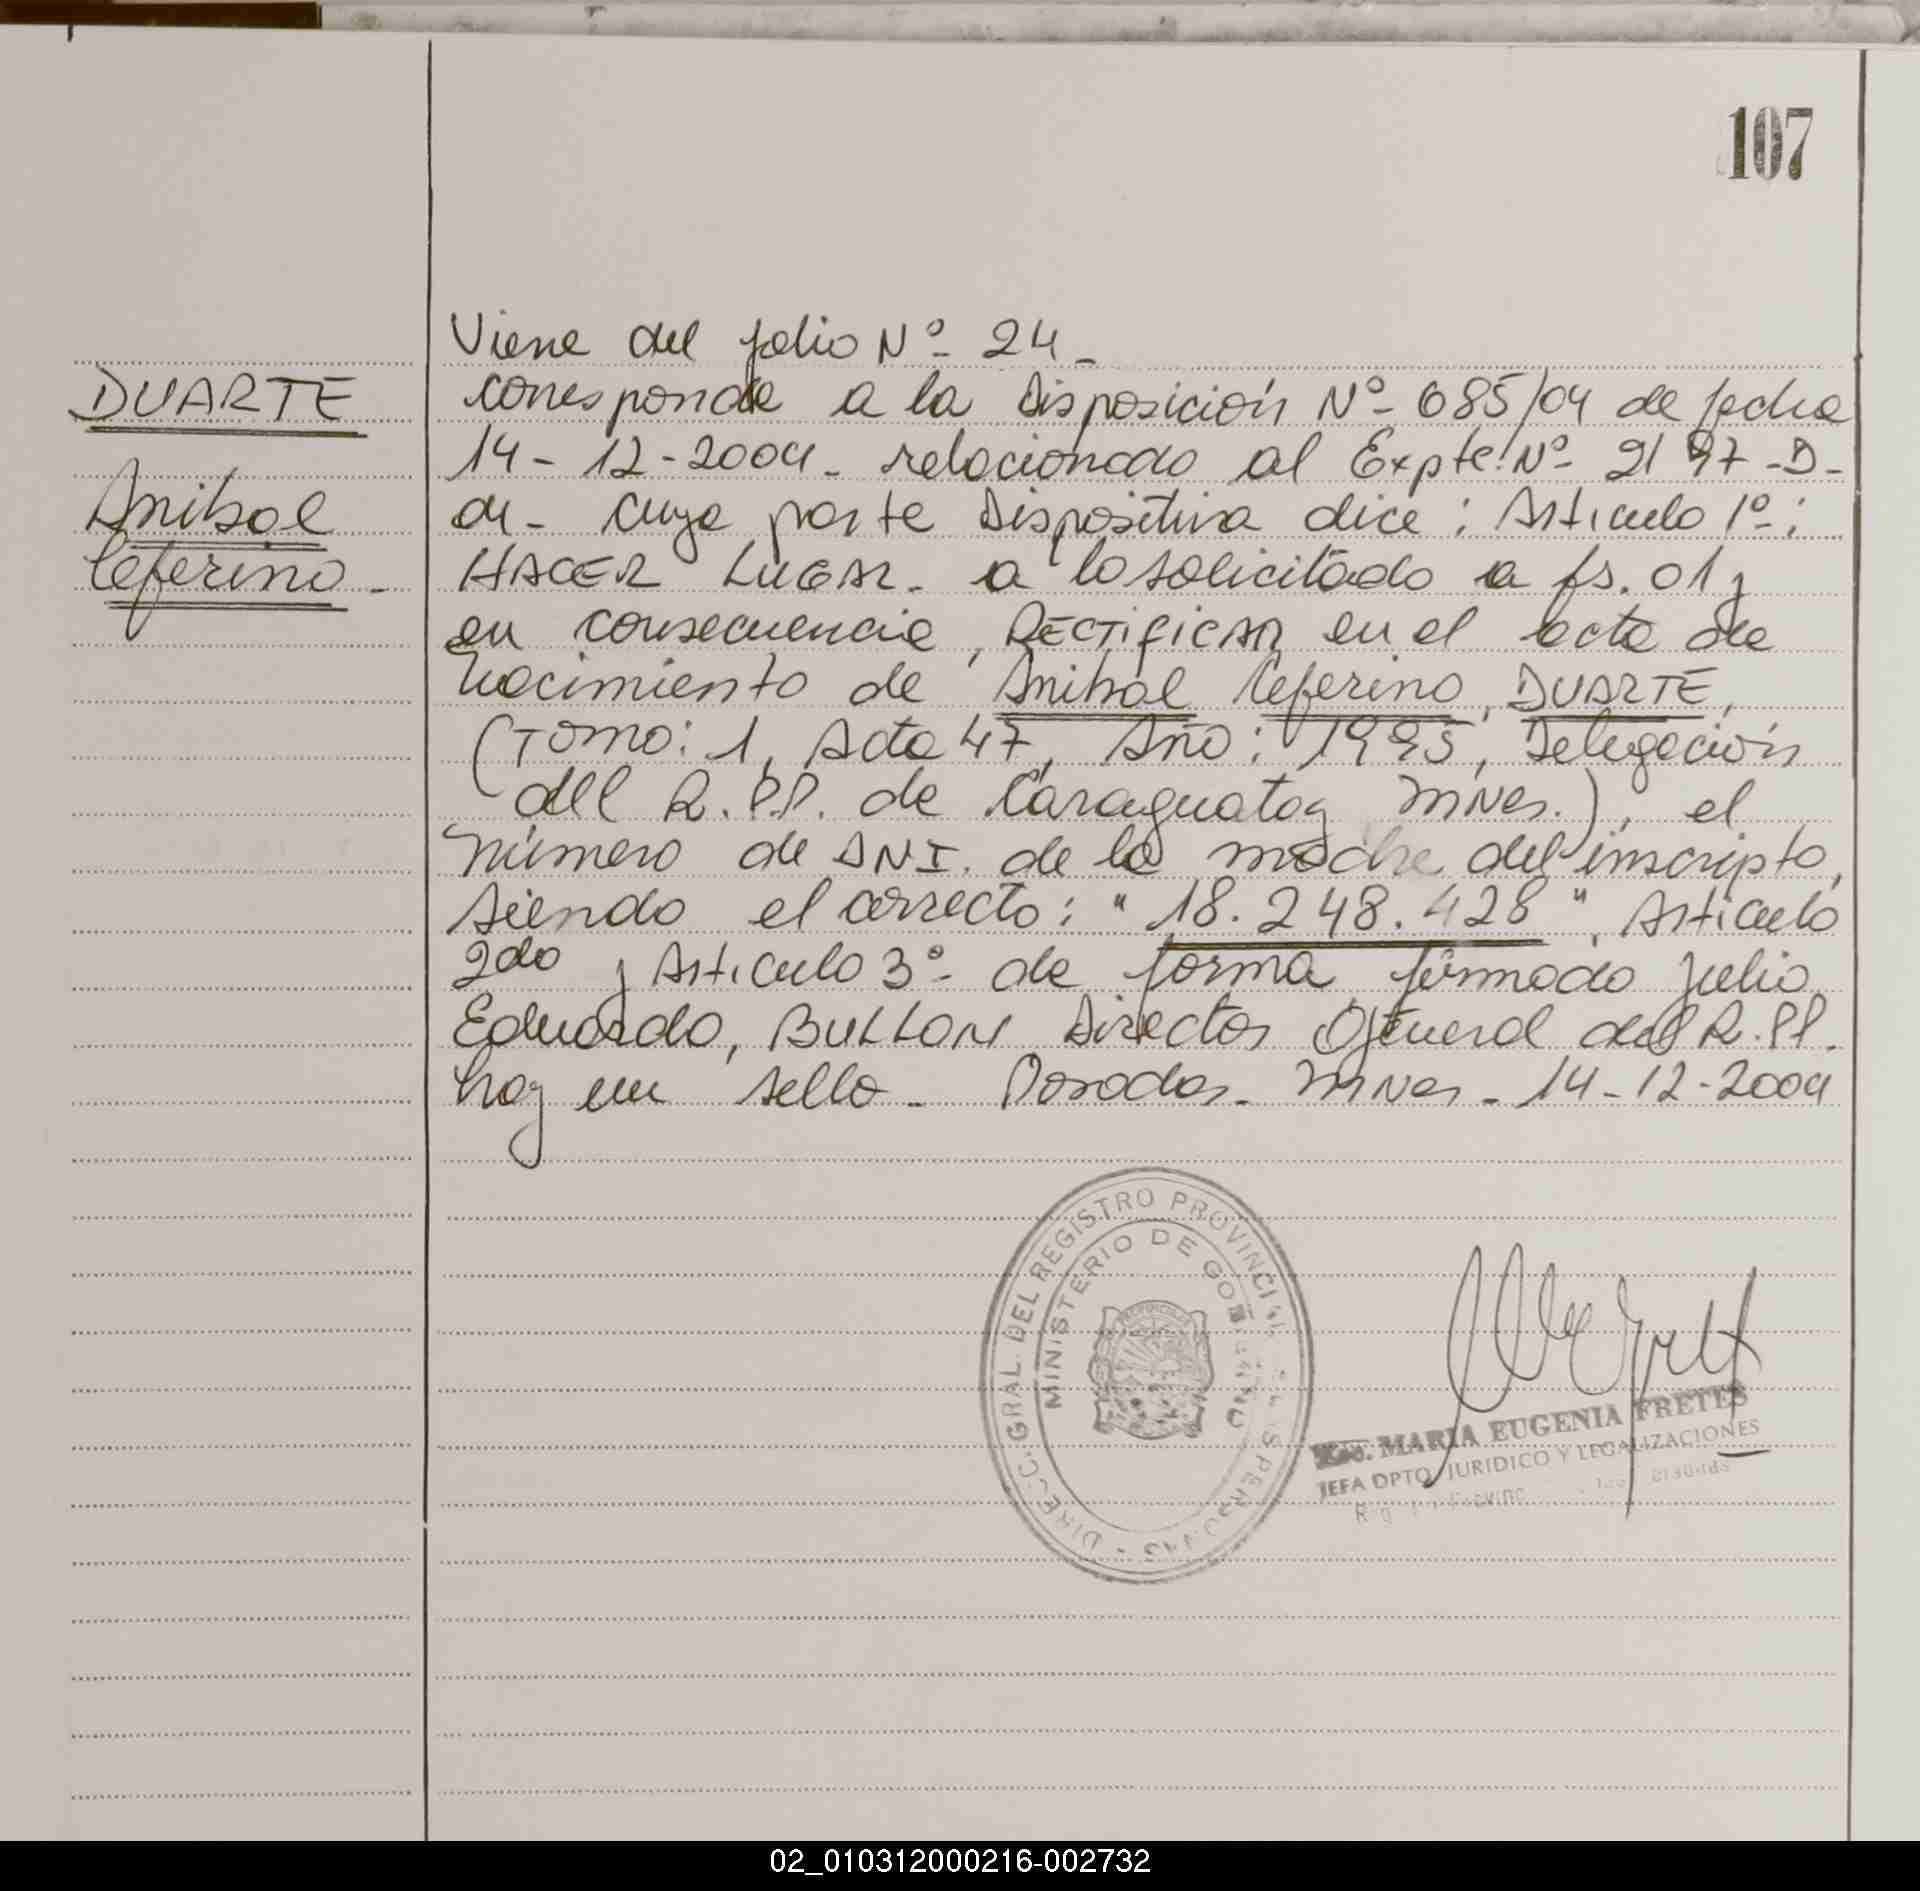 107
Viene del folio Nº 24-
DUARTE
Corresponde a la Disposición Nº 685/04 de fecha
14-12-2004- relacionado al Expte. Nº 2197-D-
Anibal
04- cuya parte Dispositiva dice: Articulo 1º:
Ceferino-
HACER LUGAR- a lo solicitado a fs. 01 y
en consecuencia, RECTIFICAR en el acta de
nacimiento de Anibal Ceferino, DUARTE,
(Tomo: 1, Acta 47, Año: 1995, Delegación
del R.P.P. de Caraguatay Mnes.), el
número de DNI. de la madre del inscripto,
siendo el correcto: "18.248.428", Articulo
2do y Articulo 3º- de forma firmado Julio
Eduardo, BULLON Director General del R.P.P.
hay un sello- Posadas- Mnes- 14-12-2004
DIRECC. GRAL. DEL REGISTRO PROVINCIAL DE LAS PERSONAS
MINISTERIO DE GOBIERNO
MARIA EUGENIA FRETES
JEFA DPTO. JURIDICO Y LEGALIZACIONES
02_010312000216-002732